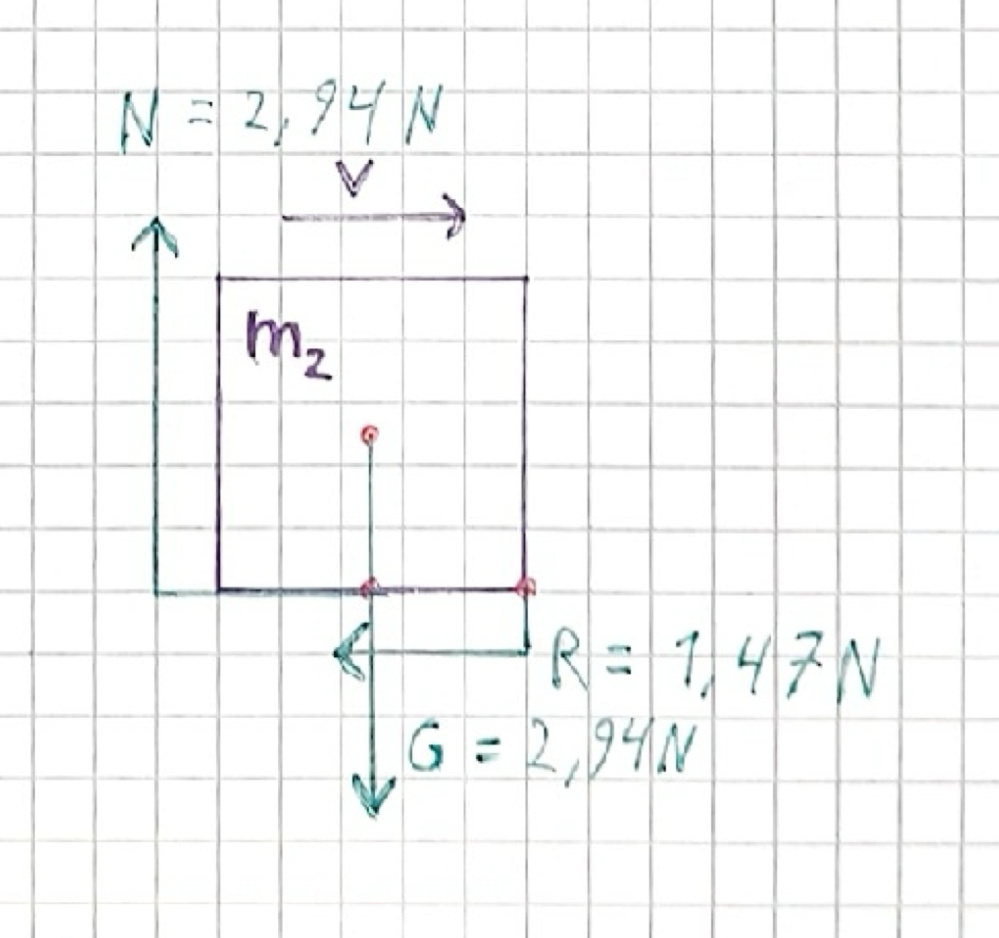 N = 2,94 N
V
m₂
R = 1,47 N
G = 2,94 N